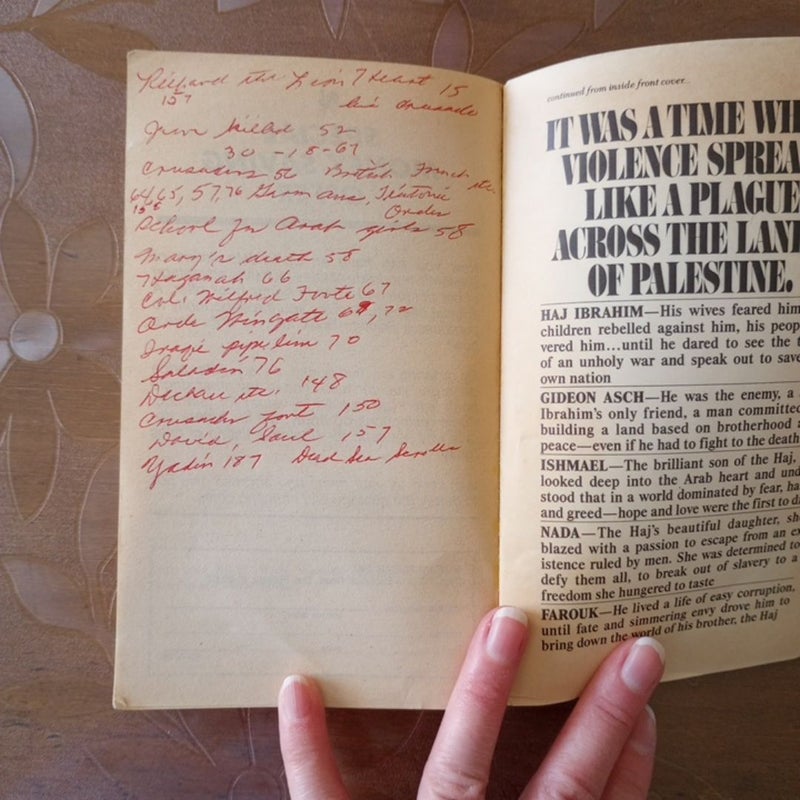 Richard the Lion Heart 15
157 his crusade
Jews killed 52
30 - 18 - 67
Crusaders 56 British French etc.
64, 65, 57, 76 Germans, Teutonic
158 Order
School for Arab girls 58
Mary's death 58
Haganah 66
Col. Wilfred Foote 67
Orde Wingate 69, 72
Iraqi pipeline 70
Saladin 76
Dachau etc. 148
Crusader fort 150
David, Saul 157
Yadin 187 Dead Sea Scrolls
continued from inside front cover...
IT WAS A TIME WH
VIOLENCE SPREA
LIKE A PLAGUE
ACROSS THE LAN
OF PALESTINE.
HAJ IBRAHIM—His wives feared him
children rebelled against him, his peop
vered him...until he dared to see the t
of an unholy war and speak out to save
own nation
GIDEON ASCH—He was the enemy, a
Ibrahim's only friend, a man committe
building a land based on brotherhood a
peace—even if he had to fight to the death
ISHMAEL—The brilliant son of the Haj,
looked deep into the Arab heart and und
stood that in a world dominated by fear, ha
and greed—hope and love were the first to d
NADA—The Haj's beautiful daughter, sh
blazed with a passion to escape from an ex
istence ruled by men. She was determined to
defy them all, to break out of slavery to a
freedom she hungered to taste
FAROUK—He lived a life of easy corruption,
until fate and simmering envy drove him to
bring down the world of his brother, the Haj